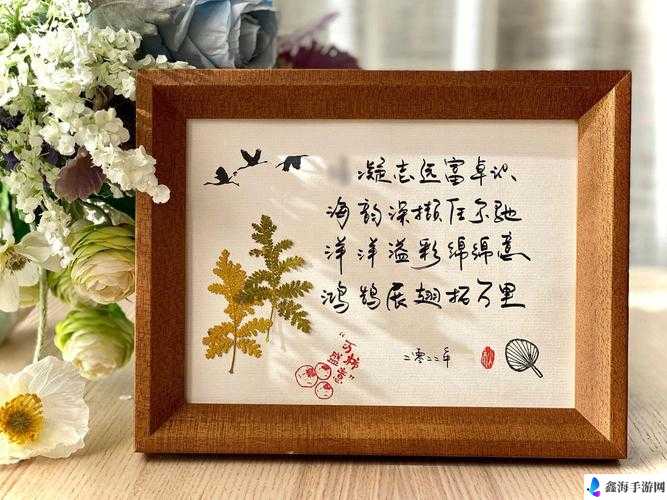 凝志远富卓识
海韵深撷任尔驰
洋洋溢彩绵绵意
鸿鹄展翅拓万里
"万柿
盛意"
二零二二年
鑫海手游网